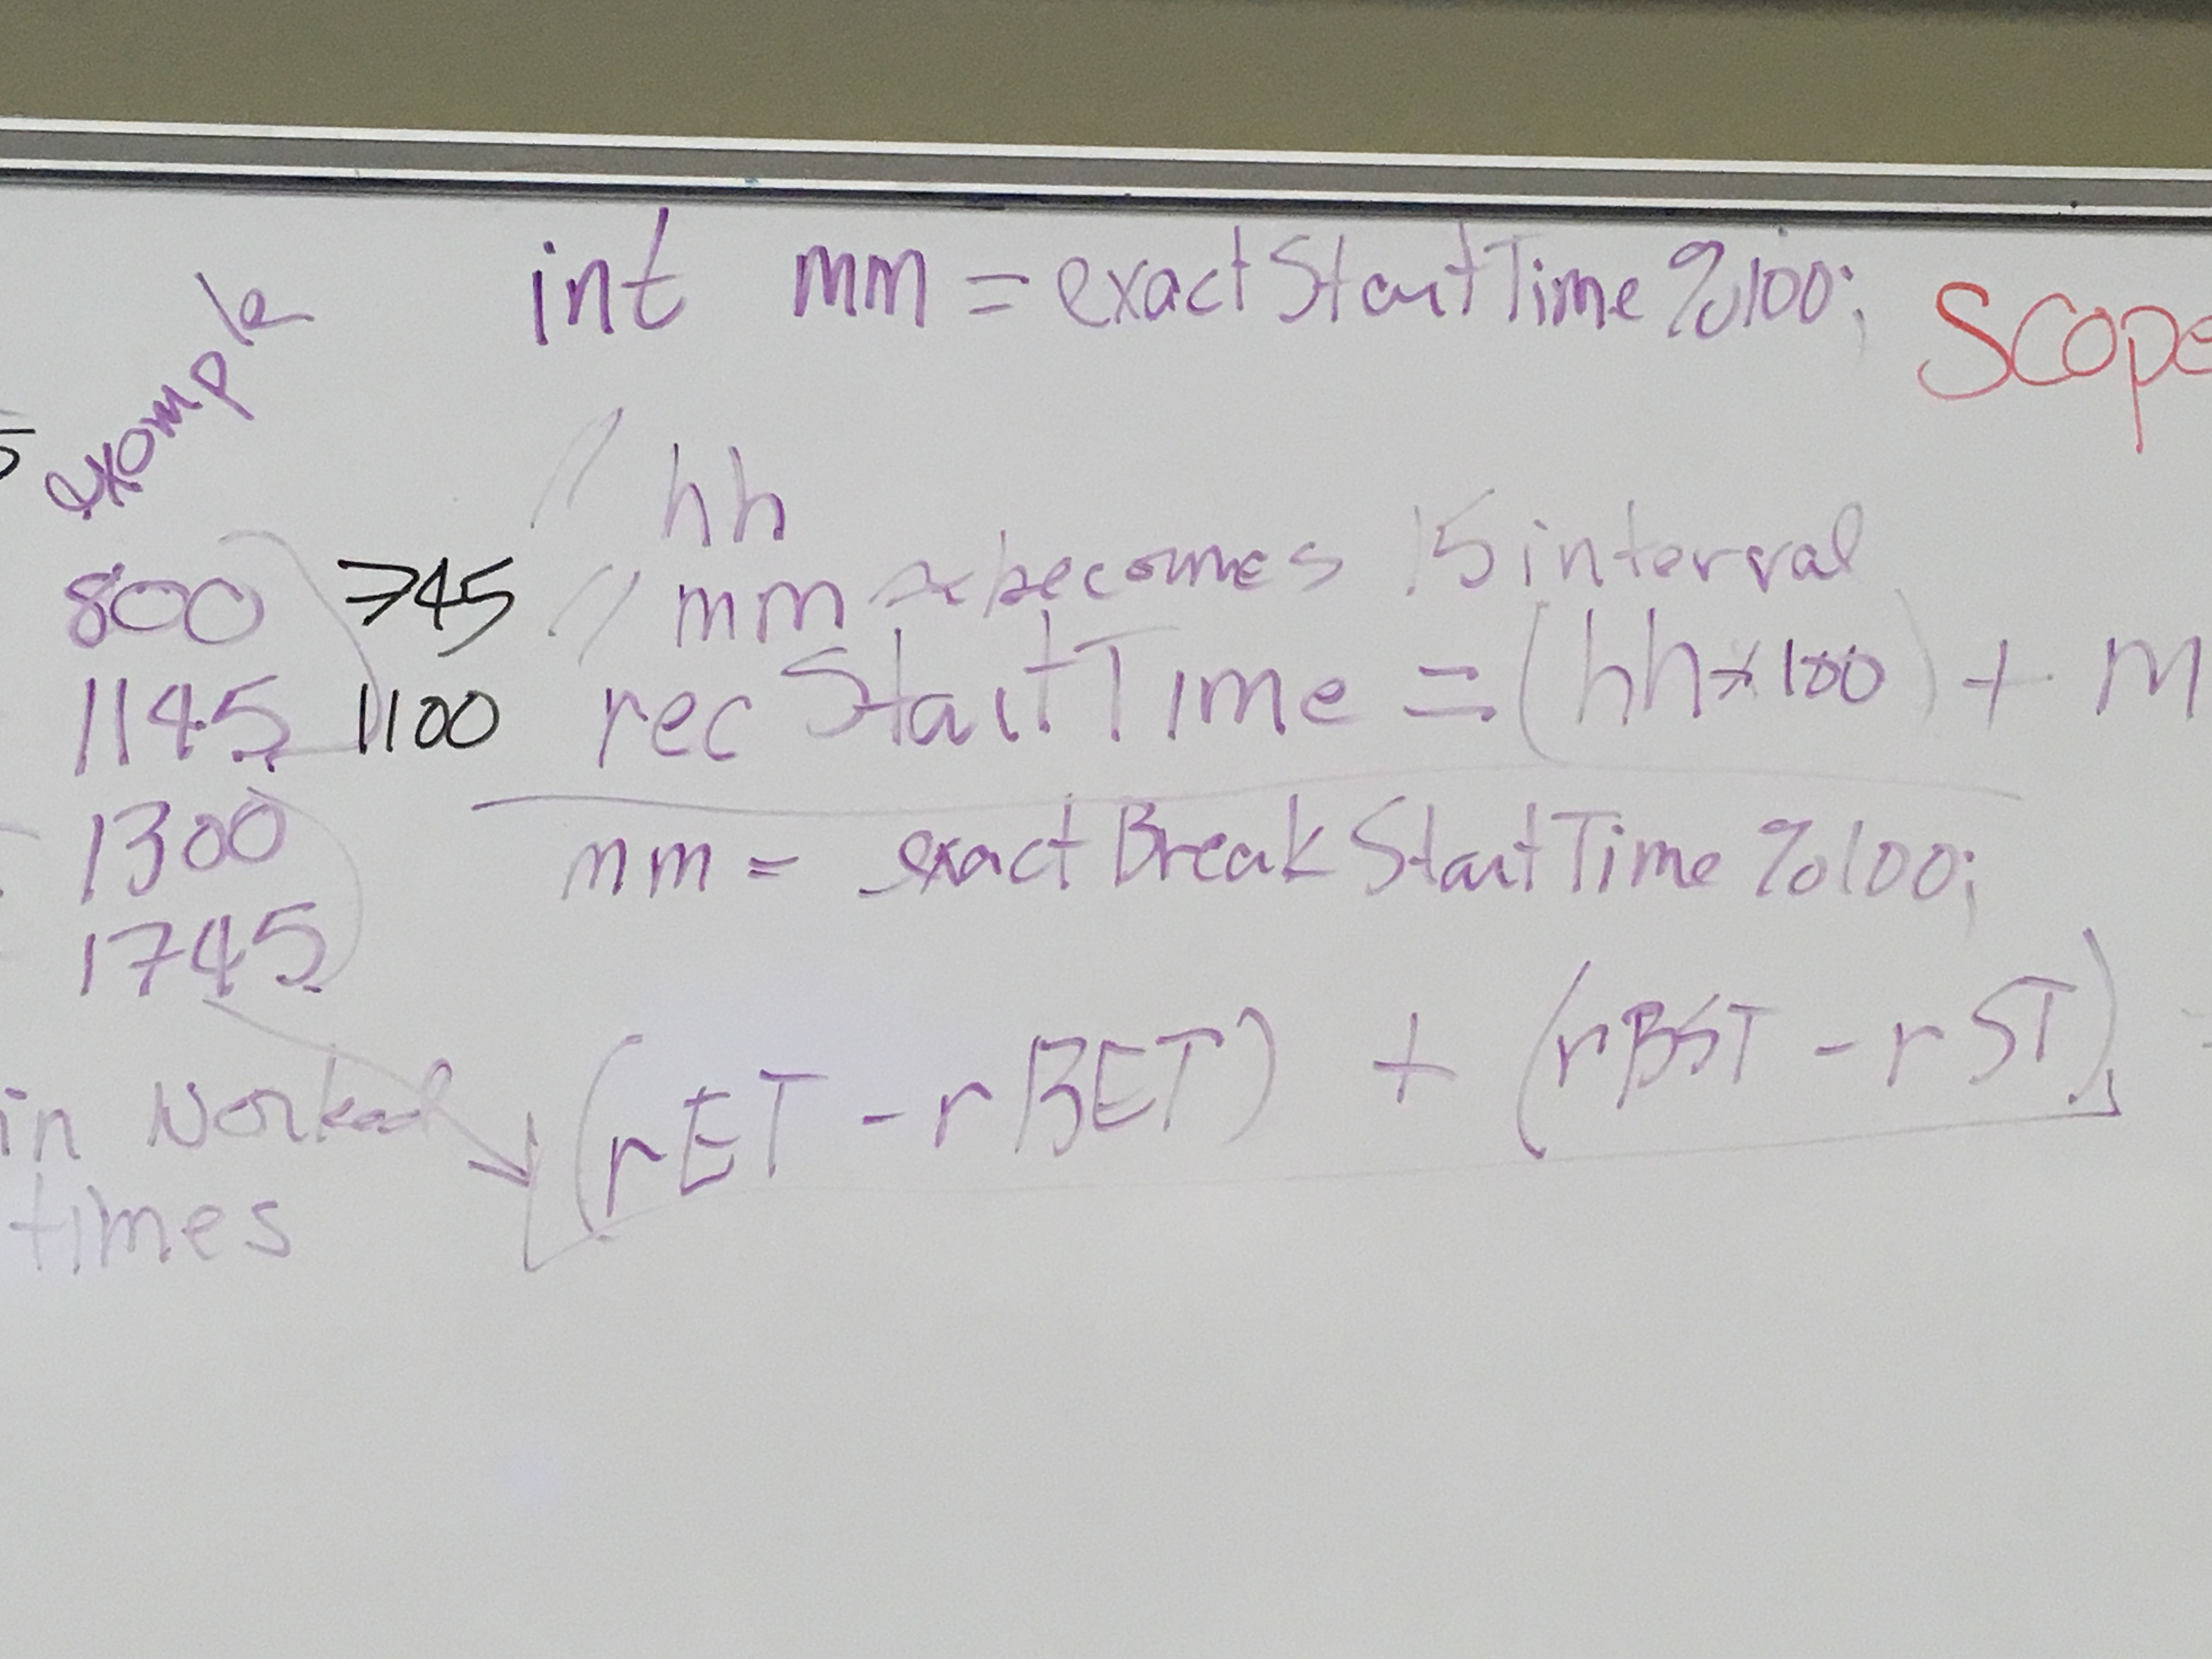 int mm = exactStartTime%100;
Scope
5
example
// hh
// mm becomes 15 interval
800 745
1145 1100
recStartTime = (hh*100) + m
1300
mm = exactBreakStartTime%100;
1745
(rET - rBET) + (rBST - rST)
in worked
times